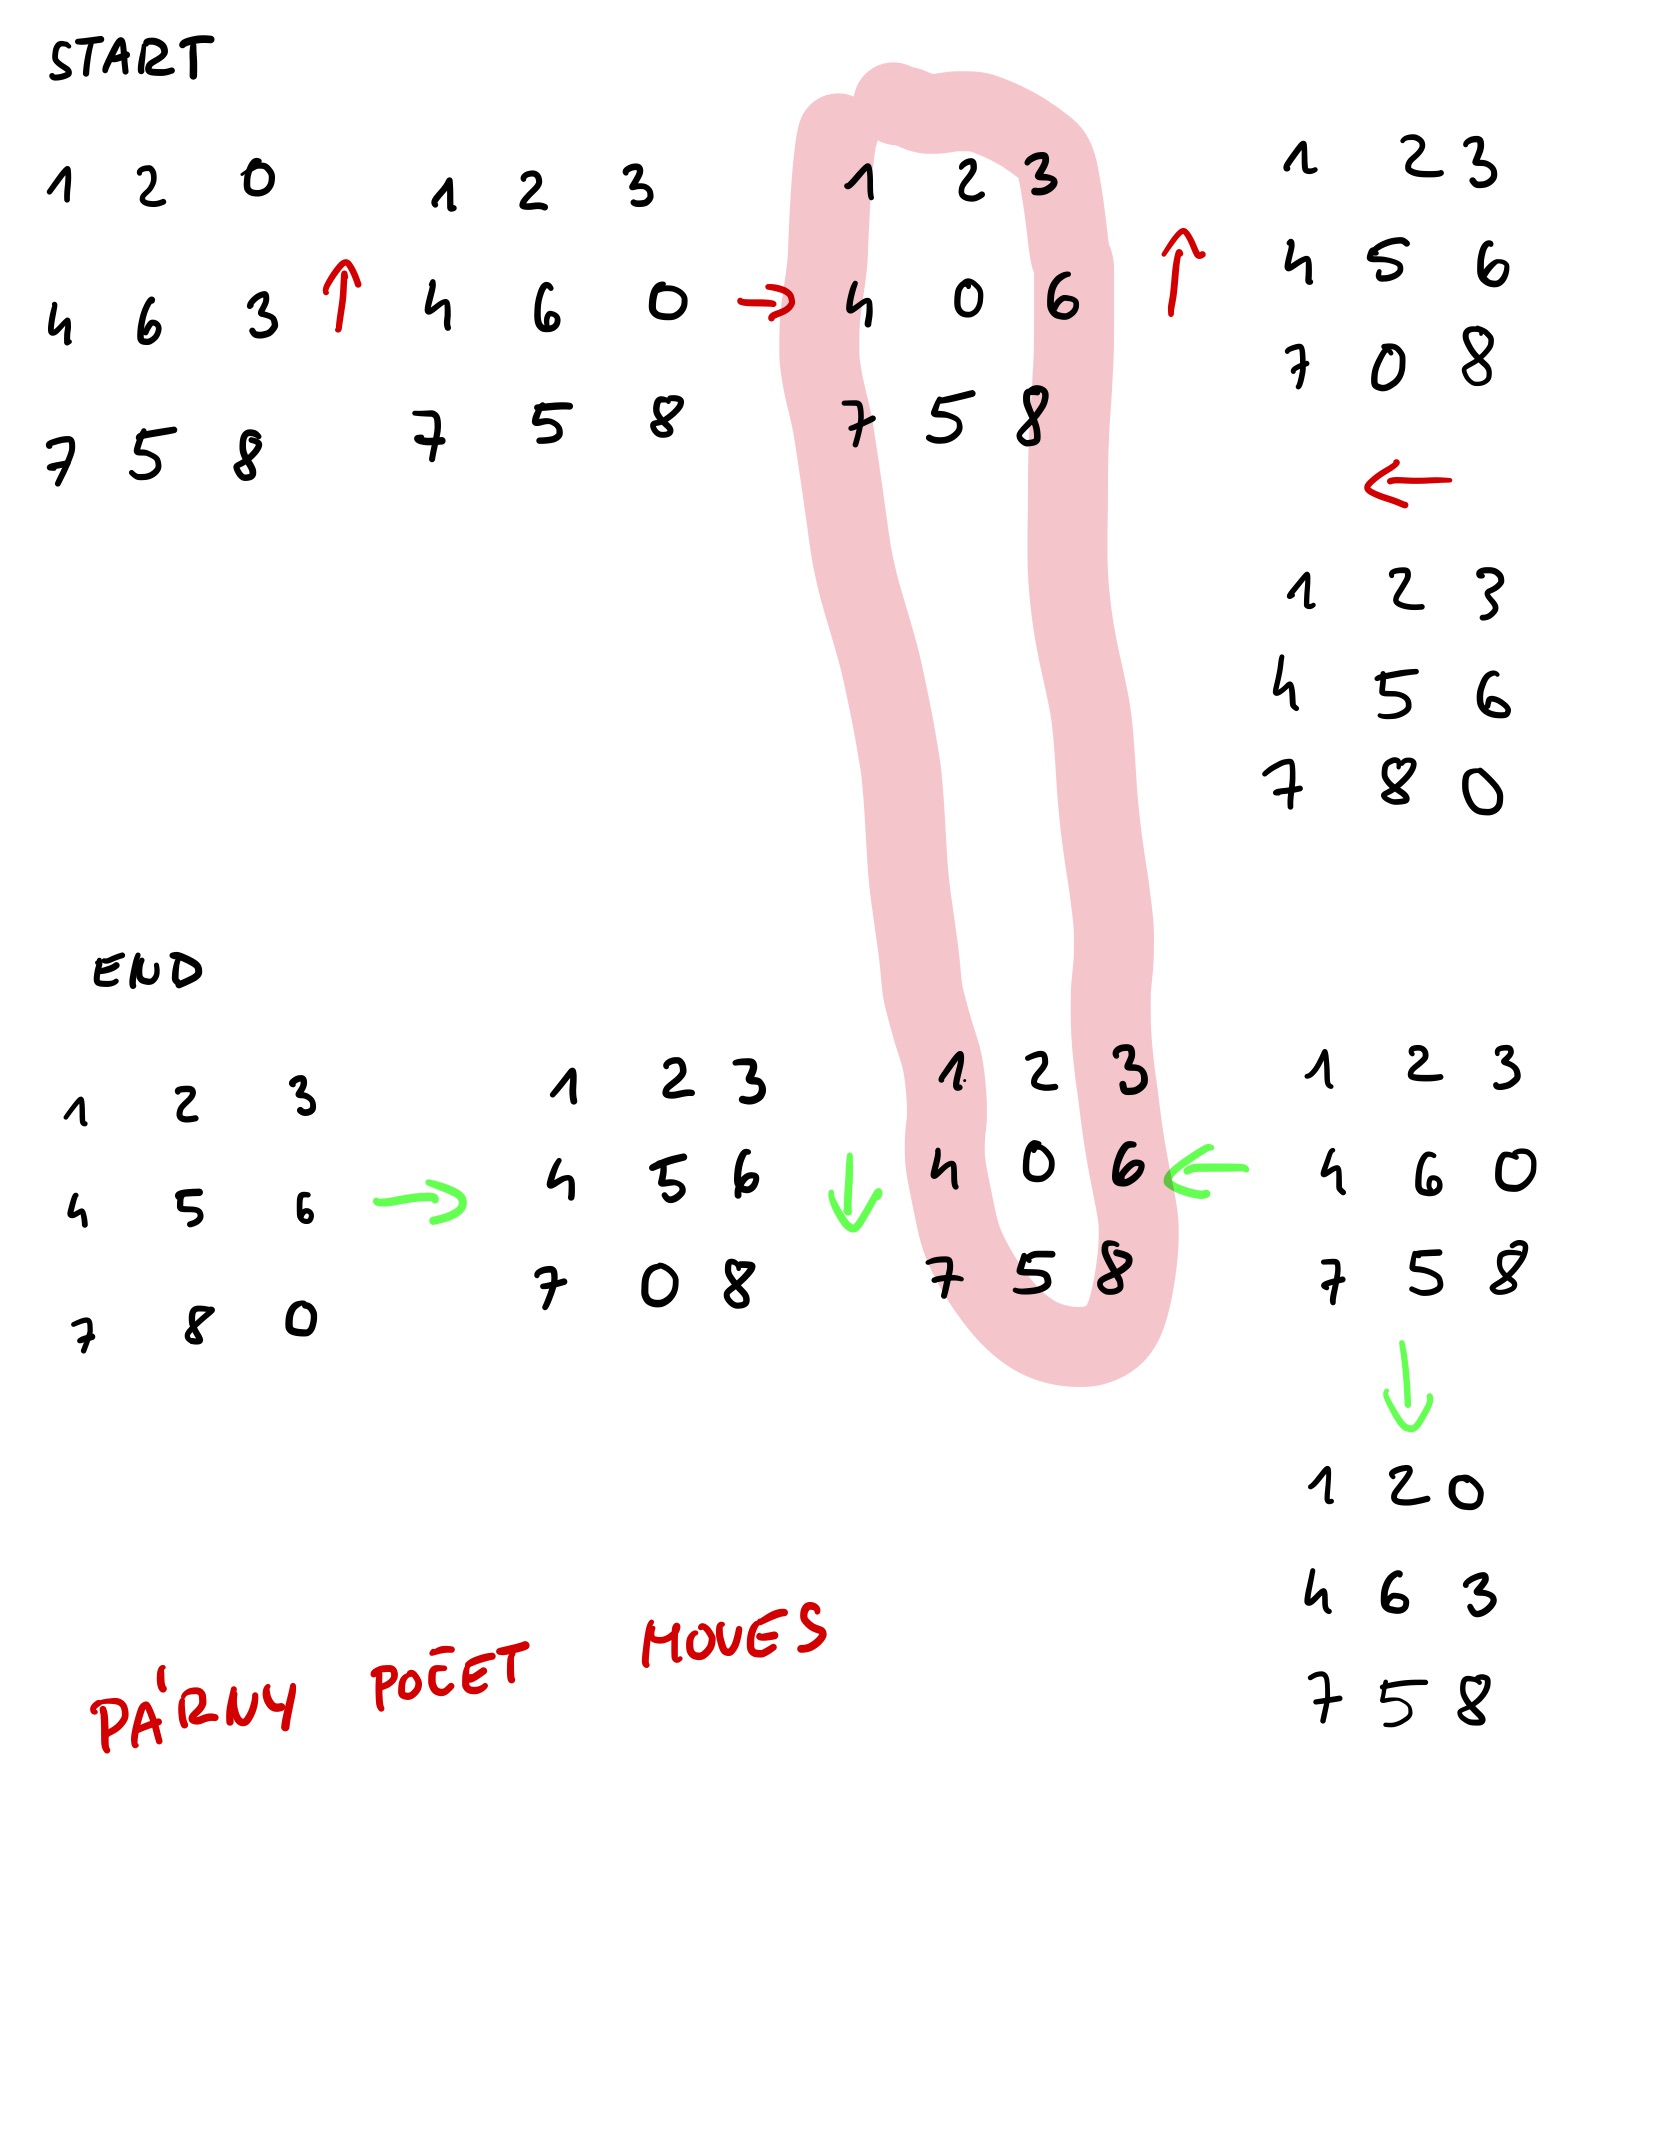 START
1 2 0
4 6 3
7 5 8
↑
1 2 3
4 6 0
7 5 8
→
1 2 3
4 0 6
7 5 8
↑
1 2 3
4 5 6
7 0 8
←
1 2 3
4 5 6
7 8 0
END
1 2 3
4 5 6
7 8 0
→
1 2 3
4 5 6
7 0 8
↓
1 2 3
4 0 6
7 5 8
←
1 2 3
4 6 0
7 5 8
↓
1 2 0
4 6 3
7 5 8
PÁRNY POČET MOVES